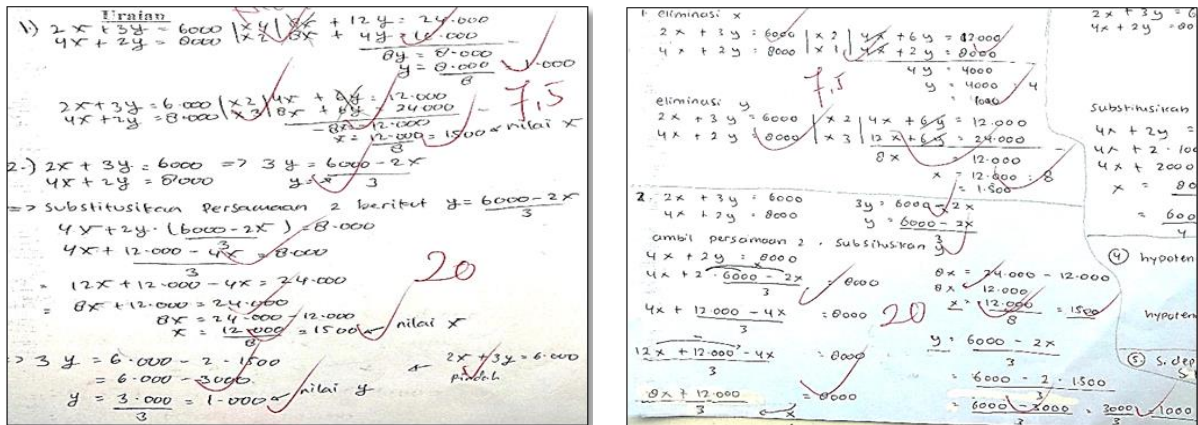 Uraian
1.) 2x + 3y = 6000 | x4 | 8x + 12y = 24.000
4x + 2y = 8000 | x2 | 8x + 4y = 16.000
8y = 8.000
y = 8.000 = 1.000
8
2x + 3y = 6.000 | x2 | 4x + 6y = 12.000
4x + 2y = 8.000 | x3 | 8x + 6y = 24000
-8x = 12.000
x = 12.000 = 1500 nilai x
8
7,5
2.) 2x + 3y = 6000 => 3y = 6000 - 2x
4x + 2y = 8000 y =
3
=> Substitusikan Persamaan 2 berikut y = 6000 - 2x
3
4x + 2y . (6000 - 2x) = 8.000
3
4x + 12.000 - 4x = 8.000
3
= 12x + 12.000 - 4x = 24.000
= 8x + 12.000 = 24.000
8x = 24.000 - 12.000
x = 12.000 = 1500 nilai x
8
20
=> 3y = 6.000 - 2 . 1500
= 6.000 - 3000
y = 3.000 = 1.000 nilai y
3
2x + 3y = 6.000
pindah
1. eliminasi x
2x + 3y = 6000 | x2 | 4x + 6y = 12000
4x + 2y = 8000 | x1 | 4x + 2y = 8000
4y = 4000
y = 4000 : 4
= 1000
7,5
eliminasi y
2x + 3y = 6000 | x2 | 4x + 6y = 12.000
4x + 2y = 8000 | x3 | 12x + 6y = 24.000
8x = 12.000
x = 12.000 : 8
= 1.500
2. 2x + 3y = 6000 3y = 6000 - 2x
4x + 2y = 8000 y = 6000 - 2x
3
ambil persamaan 2. Substitusikan y
4x + 2y = 8000
4x + 2 . 6000 - 2x = 8000
3
4x + 12.000 - 4x = 8000
3
12x + 12.000 - 4x = 8000
3
8x + 12.000 = 8000
3
20
8x = 24.000 - 12.000
8x = 12.000
x = 12.000 = 1500
8
y = 6000 - 2x
3
= 6000 - 2 . 1500
3
= 6000 - 3000 = 3000 = 1000
3 3
2x + 3y = 6
4x + 2y = 80
Substitusikan
4x + 2y =
4x + 2 . 100
4x + 2000
x = 80
= 600
4
4 hypoten
hypoten
5 s. dep
s